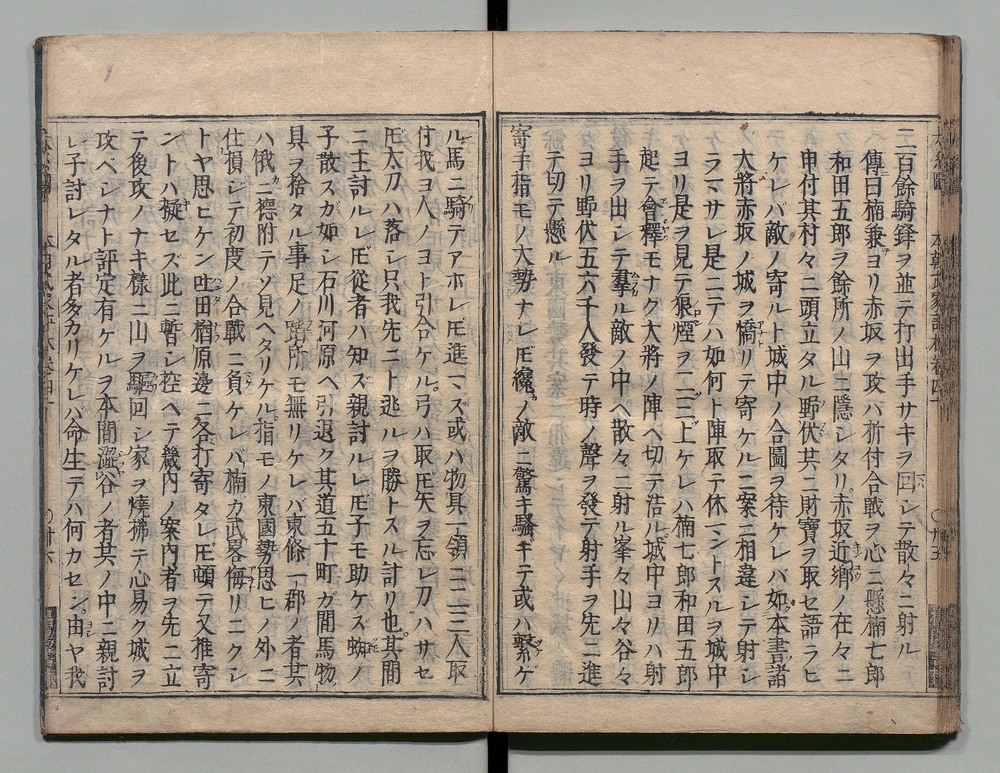 二百餘騎鋒ヲ並テ打出手サキヲ回シテ散々ニ射ル
傳曰楠兼ヨリ赤坂ヲ攻バ折付合戰ヲ心ニ懸楠七郎
和田五郎ヲ餘所ノ山ニ隱シタリ赤坂近郷ノ在々ニ
申付其村々ニ頭立タル野伏共ニ財寶ヲ取セ語ラヒ
ケレバ敵ノ寄ルト城中ノ合圖ヲ待ケレバ如本書諸
大將赤坂ノ城ヲ憍リテ寄ケルニ案ニ相違シテ射シ
ラマサレ是ニテハ如何ト陣取テ休マントスルヲ城中
ヨリ是ヲ見テ狼煙ヲ二三上ケレハ楠七郎和田五郎
起テ會釋モナク大將ノ陣ヘ切テ浩ル城中ヨリハ射
手ヲ出シテ羣ル敵ノ中ヘ散々ニ射ル峯々山々谷々
ヨリ野伏五六千人發テ時ノ聲ヲ發テ射手ヲ先ニ進
テ切テ懸ル
寄手指モノ大勢ナレ𪜈纔ノ敵ニ驚キ騷ギテ或ハ繫ゲ
ル馬ニ騎テアホレ𪜈進マズ或ハ物具一領ニ二三人取
付我ヨ人ノヨト引合ケル弓ハ取𪜈矢ヲ忘レ刀ハサセ
𪜈太刀ハ落シ只我先ニト逃ルヲ勝トスル計リ也其間
ニ主討ルレ𪜈從者ハ知ズ親討ルレ𪜈子モ助ケズ蜘ノ
子散スガ如シ石川河原ヘ引退ク其道五十町ガ間馬物
具ヲ捨タル事足ノ踏所モ無リケレバ東條一郡ノ者共
ハ俄ニ德附テゾ見ヘタリケル指モノ東國勢思ヒノ外ニ
仕損シテ初度ノ合戰ニ負ケレバ楠カ武畧侮リニクシ
トヤ思ヒケン吐田楢原邊ニ各打寄タレ𪜈頓テ又推寄
ントハ擬セズ此ニ暫シ控ヘテ畿内ノ案内者ヲ先ニ立
テ後攻ノナキ樣ニ山ヲ駈回シ家ヲ燒拂テ心易ク城ヲ
攻ベシナト評定有ケルヲ本間澁谷ノ者共ノ中ニ親討
レ子討レタル者多カリケレバ命生テハ何カセン由ヤ我